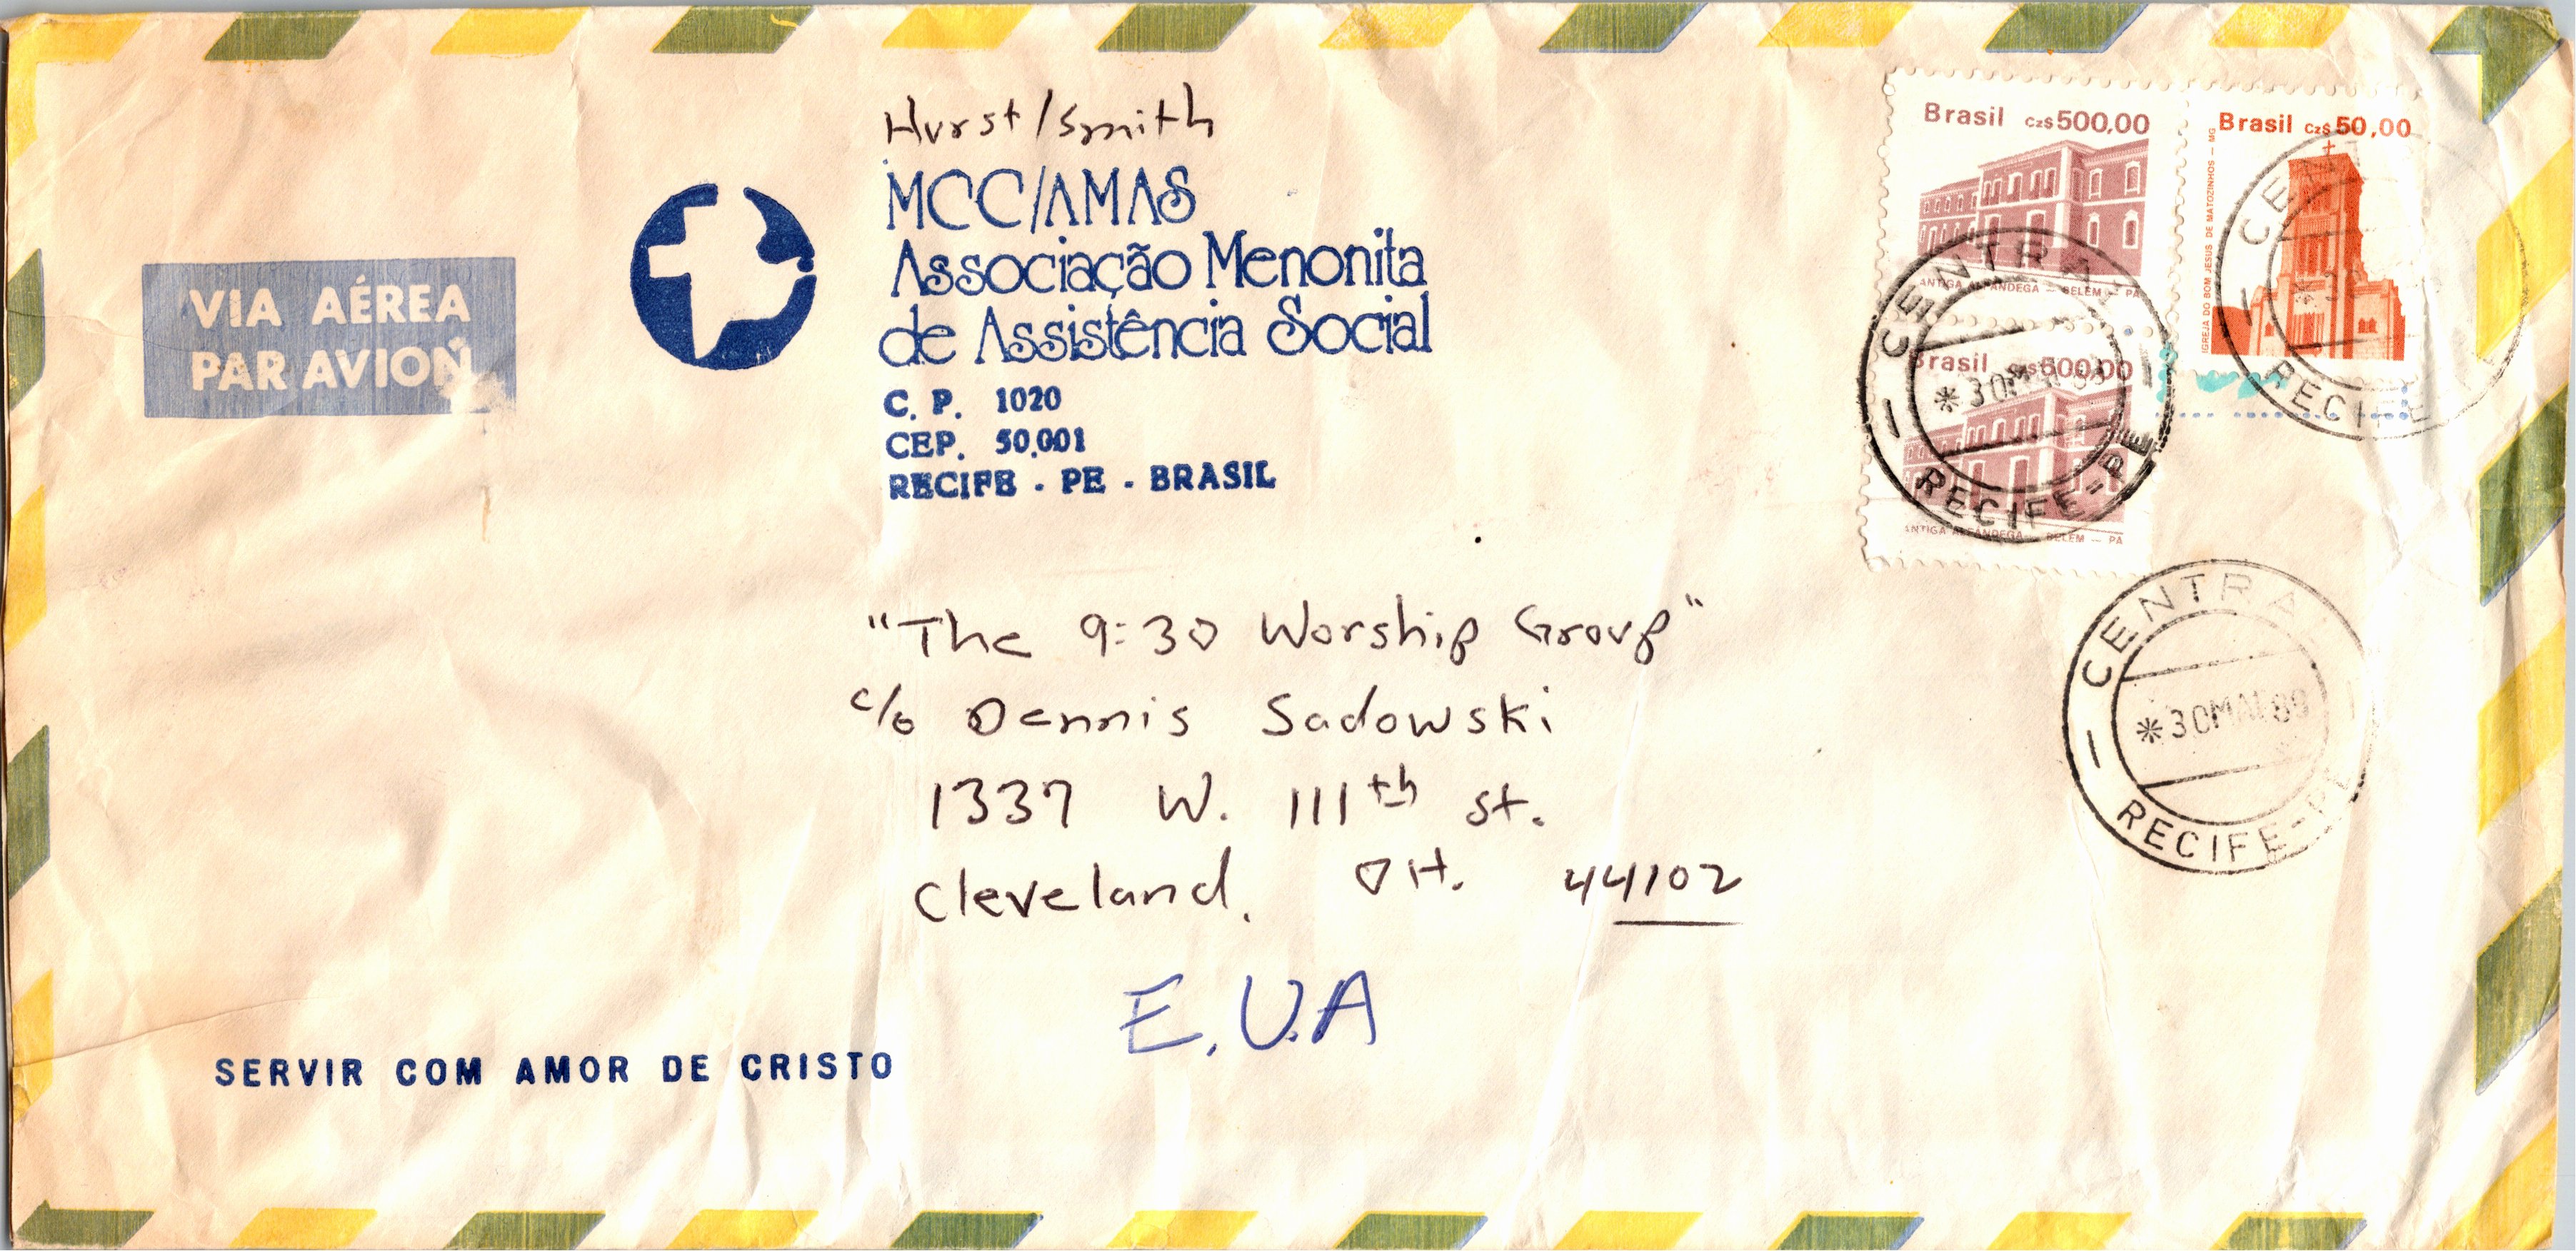 Hurst/Smith
MCC/AMAS
Associação Menonita
de Assistência Social
C. P. 1020
CEP. 50.001
RECIFE - PE - BRASIL
VIA AÉREA
PAR AVION
Brasil Cz$ 500,00
ANTIGA ALFÂNDEGA — BELÉM — PA
Brasil Cz$ 50,00
IGREJA DO BOM JESUS DE MATOZINHOS — MG
Brasil Cz$ 500,00
ANTIGA ALFÂNDEGA — BELÉM — PA
CENTRAL
*30MAI89
RECIFE-PE
CENTRAL
RECIFE
"The 9:30 Worship Group"
c/o Dennis Sadowski
1337 W. 111th St.
Cleveland, OH. 44102
E.U.A
CENTRAL
*30MAI89
RECIFE-PE
SERVIR COM AMOR DE CRISTO